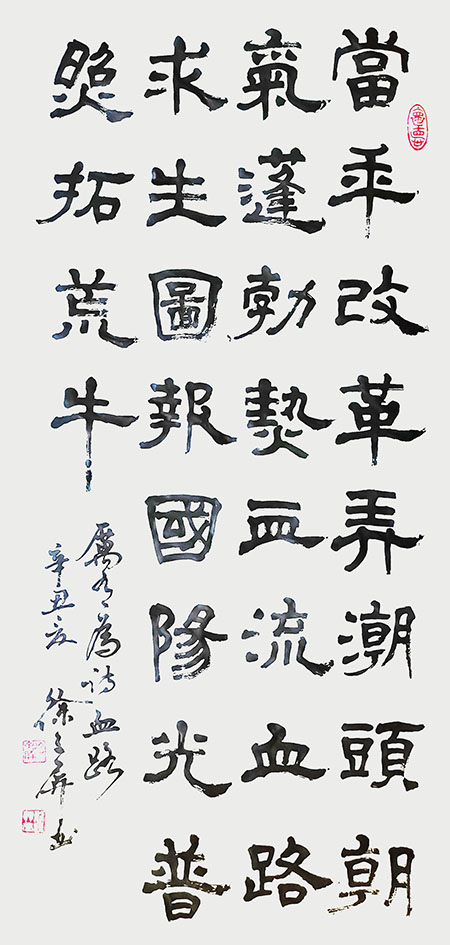 當年改革弄潮頭朝
氣蓬勃熱血流血路
求生圖報國陽光普
照拓荒牛
厲有為詩血路
辛丑夏 徐